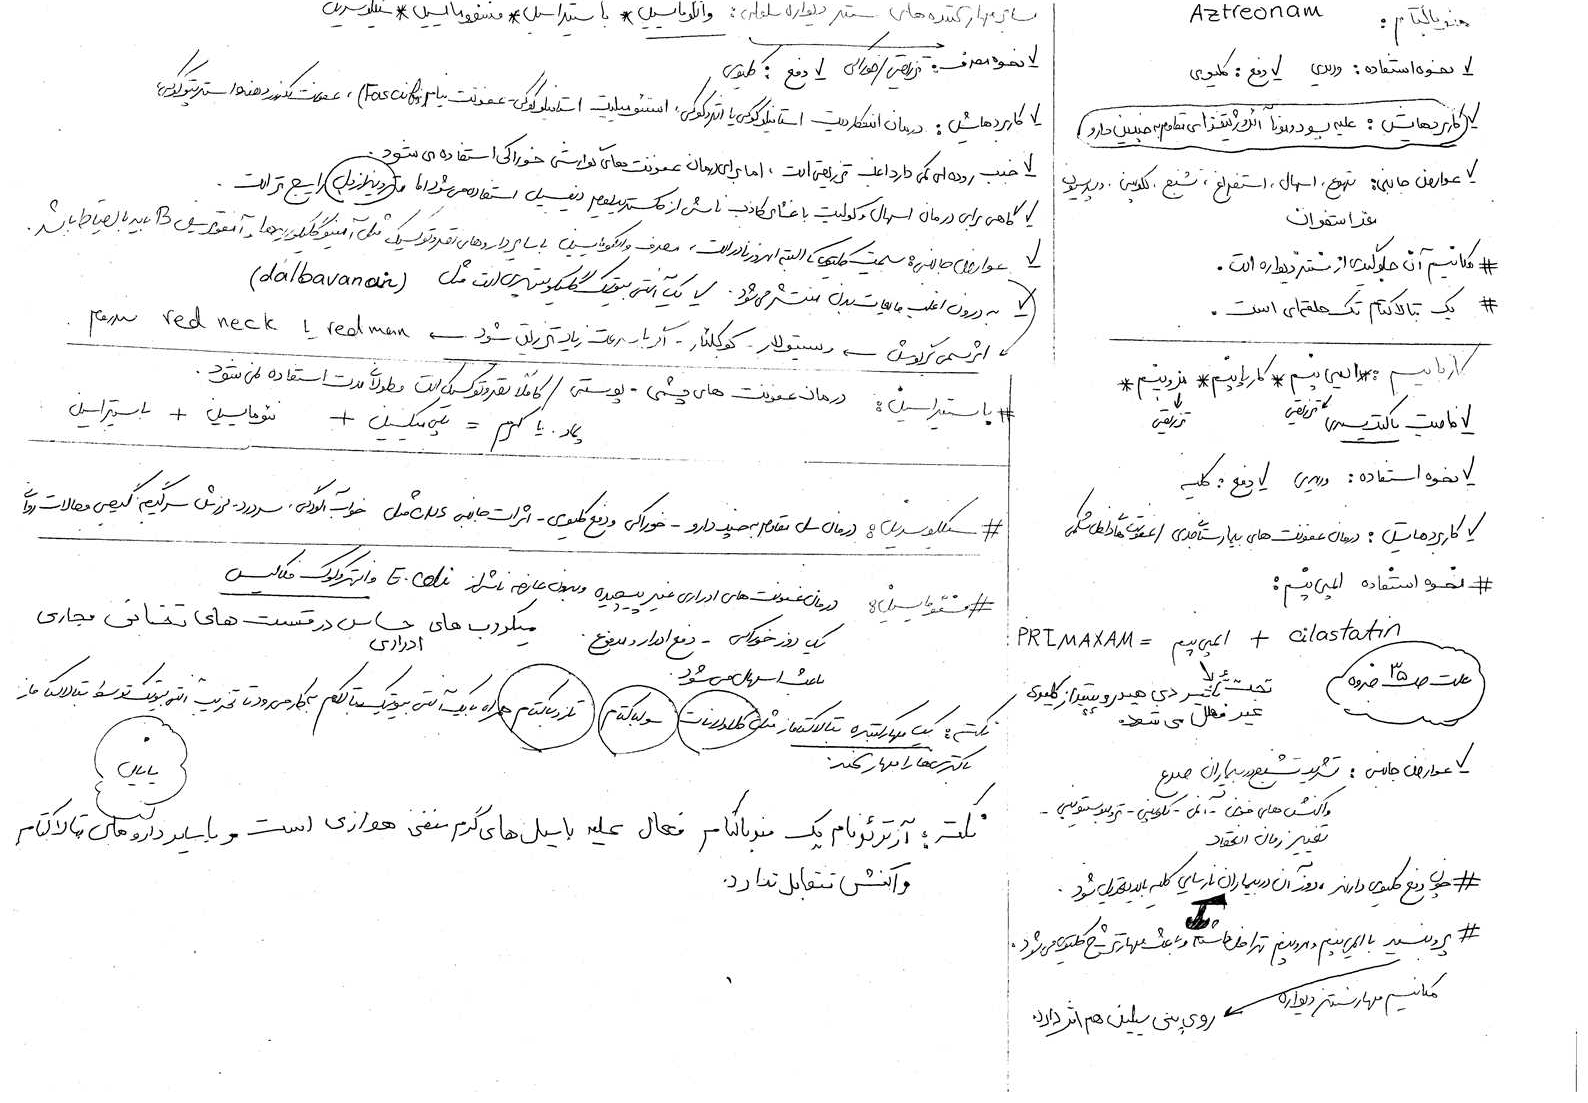 منوباکتام : Aztreonam
✓ نحوه استفاده : وریدی ✓ دفع : کلیوی
✓ کاربردهایش : علیه سودوموناآئروژینوزای مقاوم به چندین دارو
✓ عوارض جانبی : تهوع ، اسهال ، استفراغ ، تشنج ،
# مکانیسم آن جلوگیری از سنتز دیواره است .
# یک بتالاکتام تک حلقه‌ای است .
کارباپنم : * ایمی پنم * کارباپنم * مروپنم *
تزریقی تزریقی
✓ خاصیت باکتریسیدی
✓ نحوه استفاده : وریدی ✓ دفع : کلیه
✓ کاربردهایش : درمان عفونت های بیمارستانی جدی / عفونت های داخل شکمی
# نحوه استفاده ایمی پنم :
PRIMAXAM = ایمی پنم + cilastatin
علت ص ۳۵ جزوه
تحت تأثیر دی هیدروپپتیداز کلیوی
غیر فعال می شود
✓ عوارض جانبی : تشدید تشنج در بیماران صرع
واکنش های خونی - آنمی - لکوپنی - ترومبوسیتوپنی -
تغییر زمان انعقاد
# چون دفع کلیوی دارند ، دوز آن در بیماران نارسایی کلیه باید تعدیل شود .
# پروبنسید با ایمی پنم و مروپنم تداخل داشته و باعث مهار ترشح کلیوی می شود .
مکانیسم مهار سنتز دیواره
روی پنی سیلین هم اثر دارد.
سایر مهارکننده های سنتز دیواره سلولی : وانکومایسین * باسیتراسین * فسفومایسین * سیکلوسرین
✓ نحوه مصرف : تزریقی / خوراکی ✓ دفع : کلیوی
✓ کاربردهایش : درمان اندوکاردیت استافیلوکوکی یا انتروکوکی ، استئومیلیت استافیلوکوکی - عفونت نیام (Fascia) ، عفونت
✓ جذب روده ای کمی دارد اغلب تزریقی است ، اما برای درمان عفونت های گوارشی خوراکی استفاده می شود .
✓ گاهی برای درمان اسهال و کولیت با غشای کاذب ناشی از کلستریدیوم دیفسیل استفاده می شود اما مترونیدازول رایج تر است .
✓ عوارض جانبی : سمیت کلیوی که البته امروز نادر است ، مصرف وانکومایسین با سایر داروهای نفروتوکسیک مثل آمینوگلیکوزیدها و آمفوتریسین B باید با احتیاط باشد .
✓ به درون اغلب مایعات بدن منتشر می شود . ✓ یک آنتی بیوتیک گلیکوپپتیدی است مثل (dalbavancin)
اثر سمی گوش ← وستیبولار - کوکلئار - اگر با سرعت زیاد تزریق شود ← red man یا red neck سندروم .
# باسیتراسین : درمان عفونت های چشمی - پوستی / کاملاً نفروتوکسیک است و طولانی مدت استفاده نمی شود .
پماد . یا کرم = پلی میکسین + نئومایسین + باسیتراسین
# سیکلوسرین : درمان سل مقاوم به چند دارو - خوراکی و دفع کلیوی - اثرات جانبی CNS مثل خواب آلودگی ، سردرد - لرزش سرگیجه گیجی و حالات روانی
# فسفومایسین : درمان عفونت های ادراری غیر پیچیده و بدون عارضه ناشی از E.coli و انتروکوک فکالیس
تک دوز خوراکی - دفع ادرار و مدفوع . میکروب های حساس در قسمت های تحتانی مجاری
ادراری
باعث اسهال می شود .
نکته : یک مهار کننده بتالاکتاماز مثل کلاولانات سولباکتام تازوباکتام همراه با یک آنتی بیوتیک بتالاکتام بکار می رود تا تخریب آنتی بیوتیک توسط بتالاکتاماز
باکتری ها را مهار کند .
پایان
نکته : آزترئونام یک منوباکتام فعال علیه باسیل های گرم منفی هوازی است و با سایر داروهای بتالاکتام
واکنش متقابل ندارد .